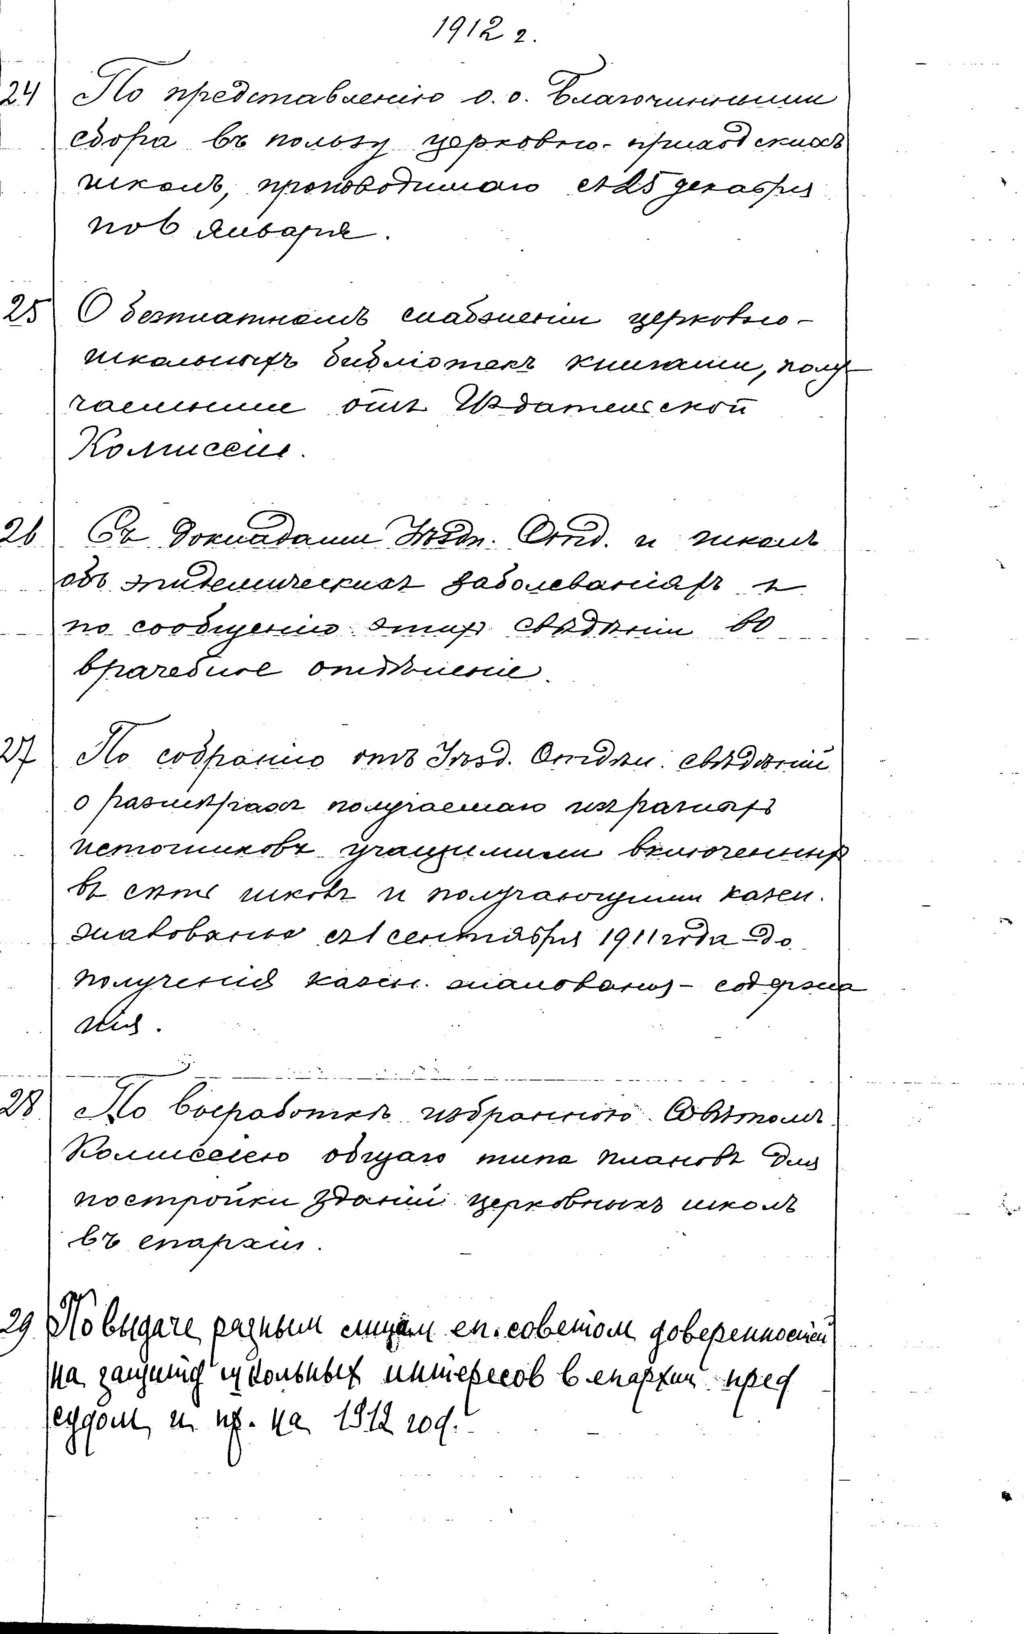 1912 г.
24 По представленію о. о. Благочинными
сбора въ пользу церковно-приходскихъ
школъ, производимаго съ 25 декабря
по 6 января.
25 О безплатномъ снабженіи церковно-
школьныхъ библіотекъ книгами, полу-
чаемыми отъ Издательской
Комиссіи.
26 Съ докладами Уѣздн. Отд. и школъ
объ эпидемическихъ заболеваніяхъ и
по сообщенію этихъ свѣдѣній во
врачебное отдѣленіе.
27 По собранію отъ Уѣзд. Отдѣл. свѣдѣній
о размѣрахъ получаемаго изъ разныхъ
источниковъ учащимися включенныхъ
въ сѣть школъ и получающими казен.
жалованье съ 1 сентября 1911 года до
полученія казен. жалованья - содержа
нія.
28 По выработкѣ избранною Совѣтомъ
Комиссіею общаго типа плановъ для
постройки зданій церковныхъ школъ
въ епархіи.
29 По выдаче разным лицам еп. советом доверенностей
на защиту школьных интересов в епархии пред
судом и пр. на 1912 год.